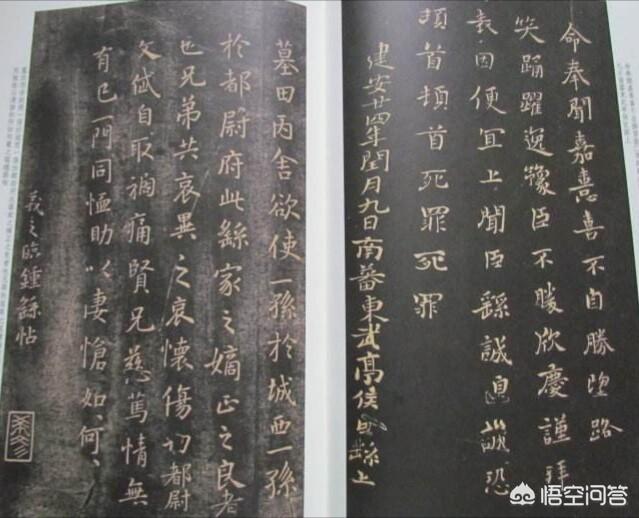 命奉聞嘉憙喜不自勝望路
笑踊躍逸豫臣不勝欣慶謹拜
表因便宜上聞臣繇誠惶誠恐
頓首頓首死罪死罪
建安廿四年閏月九日南蕃東武亭侯臣繇上
墓田丙舍欲使一孫於城西一孫
於都尉府此繇家之嫡正之良者
也兄弟共哀異之哀懷傷切都尉
文岱自取禍痛賢兄慈篤情無
有已一門同恤助以悽愴如、何、
羲之臨鍾繇帖
悟空问答